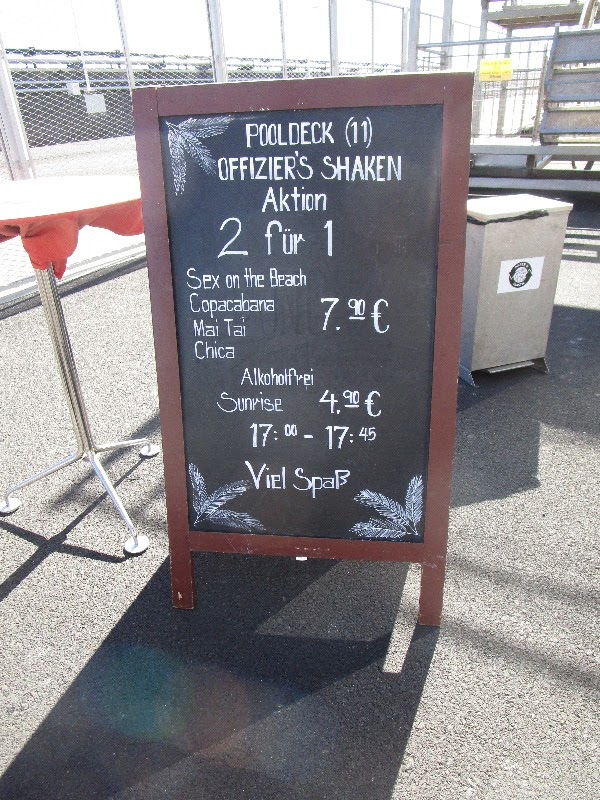 POOLDECK (11)
OFFIZIER'S SHAKEN
Aktion
2 für 1
Sex on the Beach
Copacabana
Mai Tai
Chica
7.90 €
Alkoholfrei
Sunrise 4.90 €
17:00 - 17:45
Viel Spaß